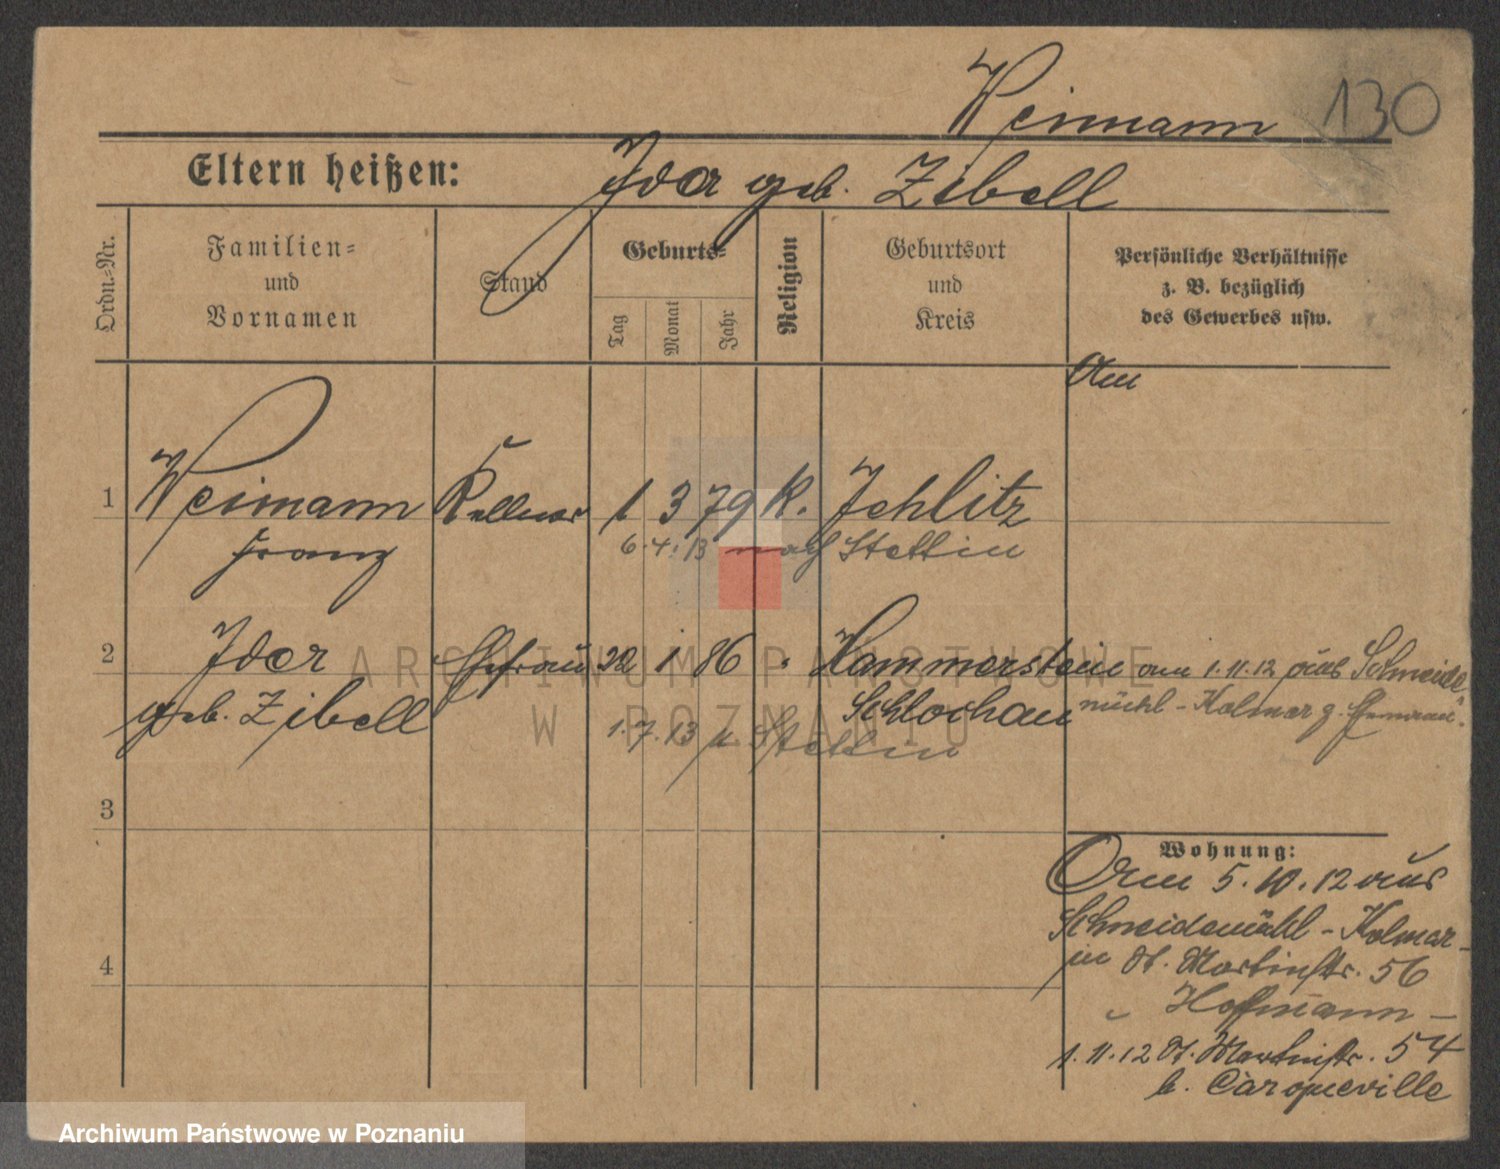 Weimann 130
Eltern heißen: Ida geb. Zibell
Ordn.=Nr.
Familien=
und
Vornamen
Stand
Geburts=
Tag
Monat
Jahr
Religion
Geburtsort
und
Kreis
Persönliche Verhältnisse
z. B. bezüglich
des Gewerbes usw.
Am
1 Weimann Kellner 1 3 79 k. Jehlitz
Franz 6.4.13 nach Stettin
2 Ida Ehefrau 22 1 86 " Hammerstein am 1.11.12 aus Schneide
geb. Zibell Schlochau mühl - Kolmar z. Ehemann
1.7.13 n Stettin
3
Wohnung:
Am 5.10.12 aus
Schneidemühl - Kolmar -
in St. Martinstr. 56
4
Hoffmann -
1.11.12 St. Martinstr. 54
b. Caroqueville
ARCHIWUM PAŃSTWOWE
W POZNANIU
Archiwum Państwowe w Poznaniu